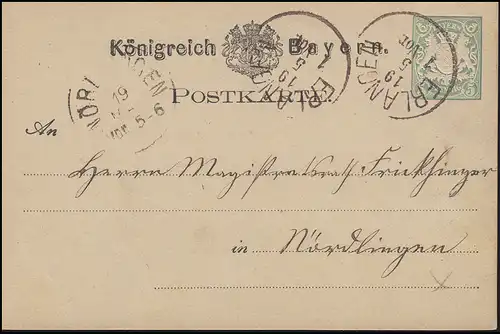 Königreich Bayern.
POSTKARTE.
ERLANGEN
19
5
ERLANGEN
19
5
NÖRDLINGEN
19
5-6
An
Herrn Magistratsrath Frickhinger
in Nördlingen
5